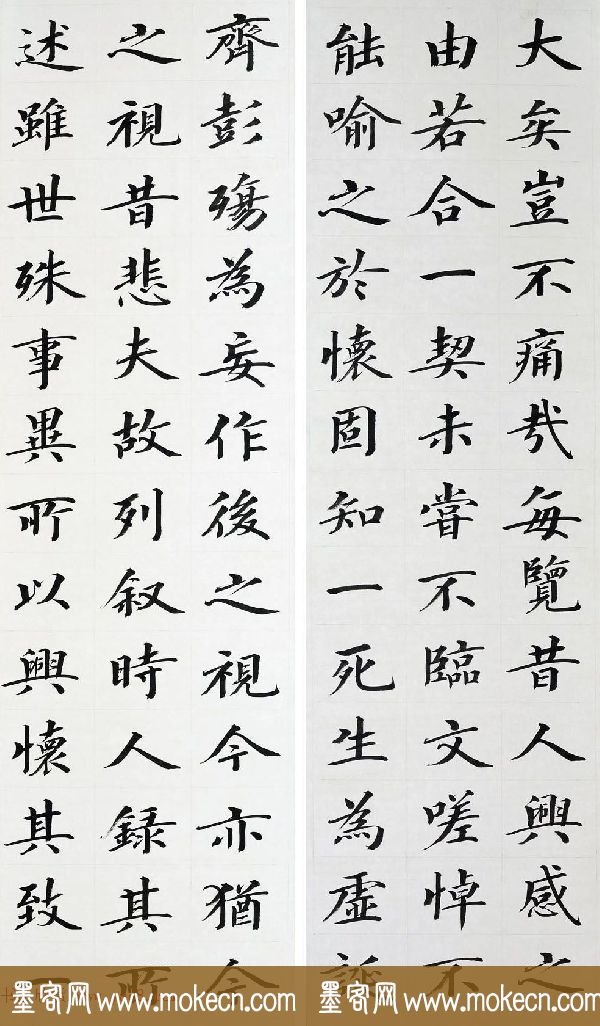 大矣豈不痛哉每覽昔人興感之
由若合一契未嘗不臨文嗟悼不
能喻之於懷固知一死生為虛誕
齊彭殤為妄作後之視今亦猶今
之視昔悲夫故列叙時人錄其所
述雖世殊事異所以興懷其致一
墨客网_www.mokecn.com 墨客网_www.mokecn.com